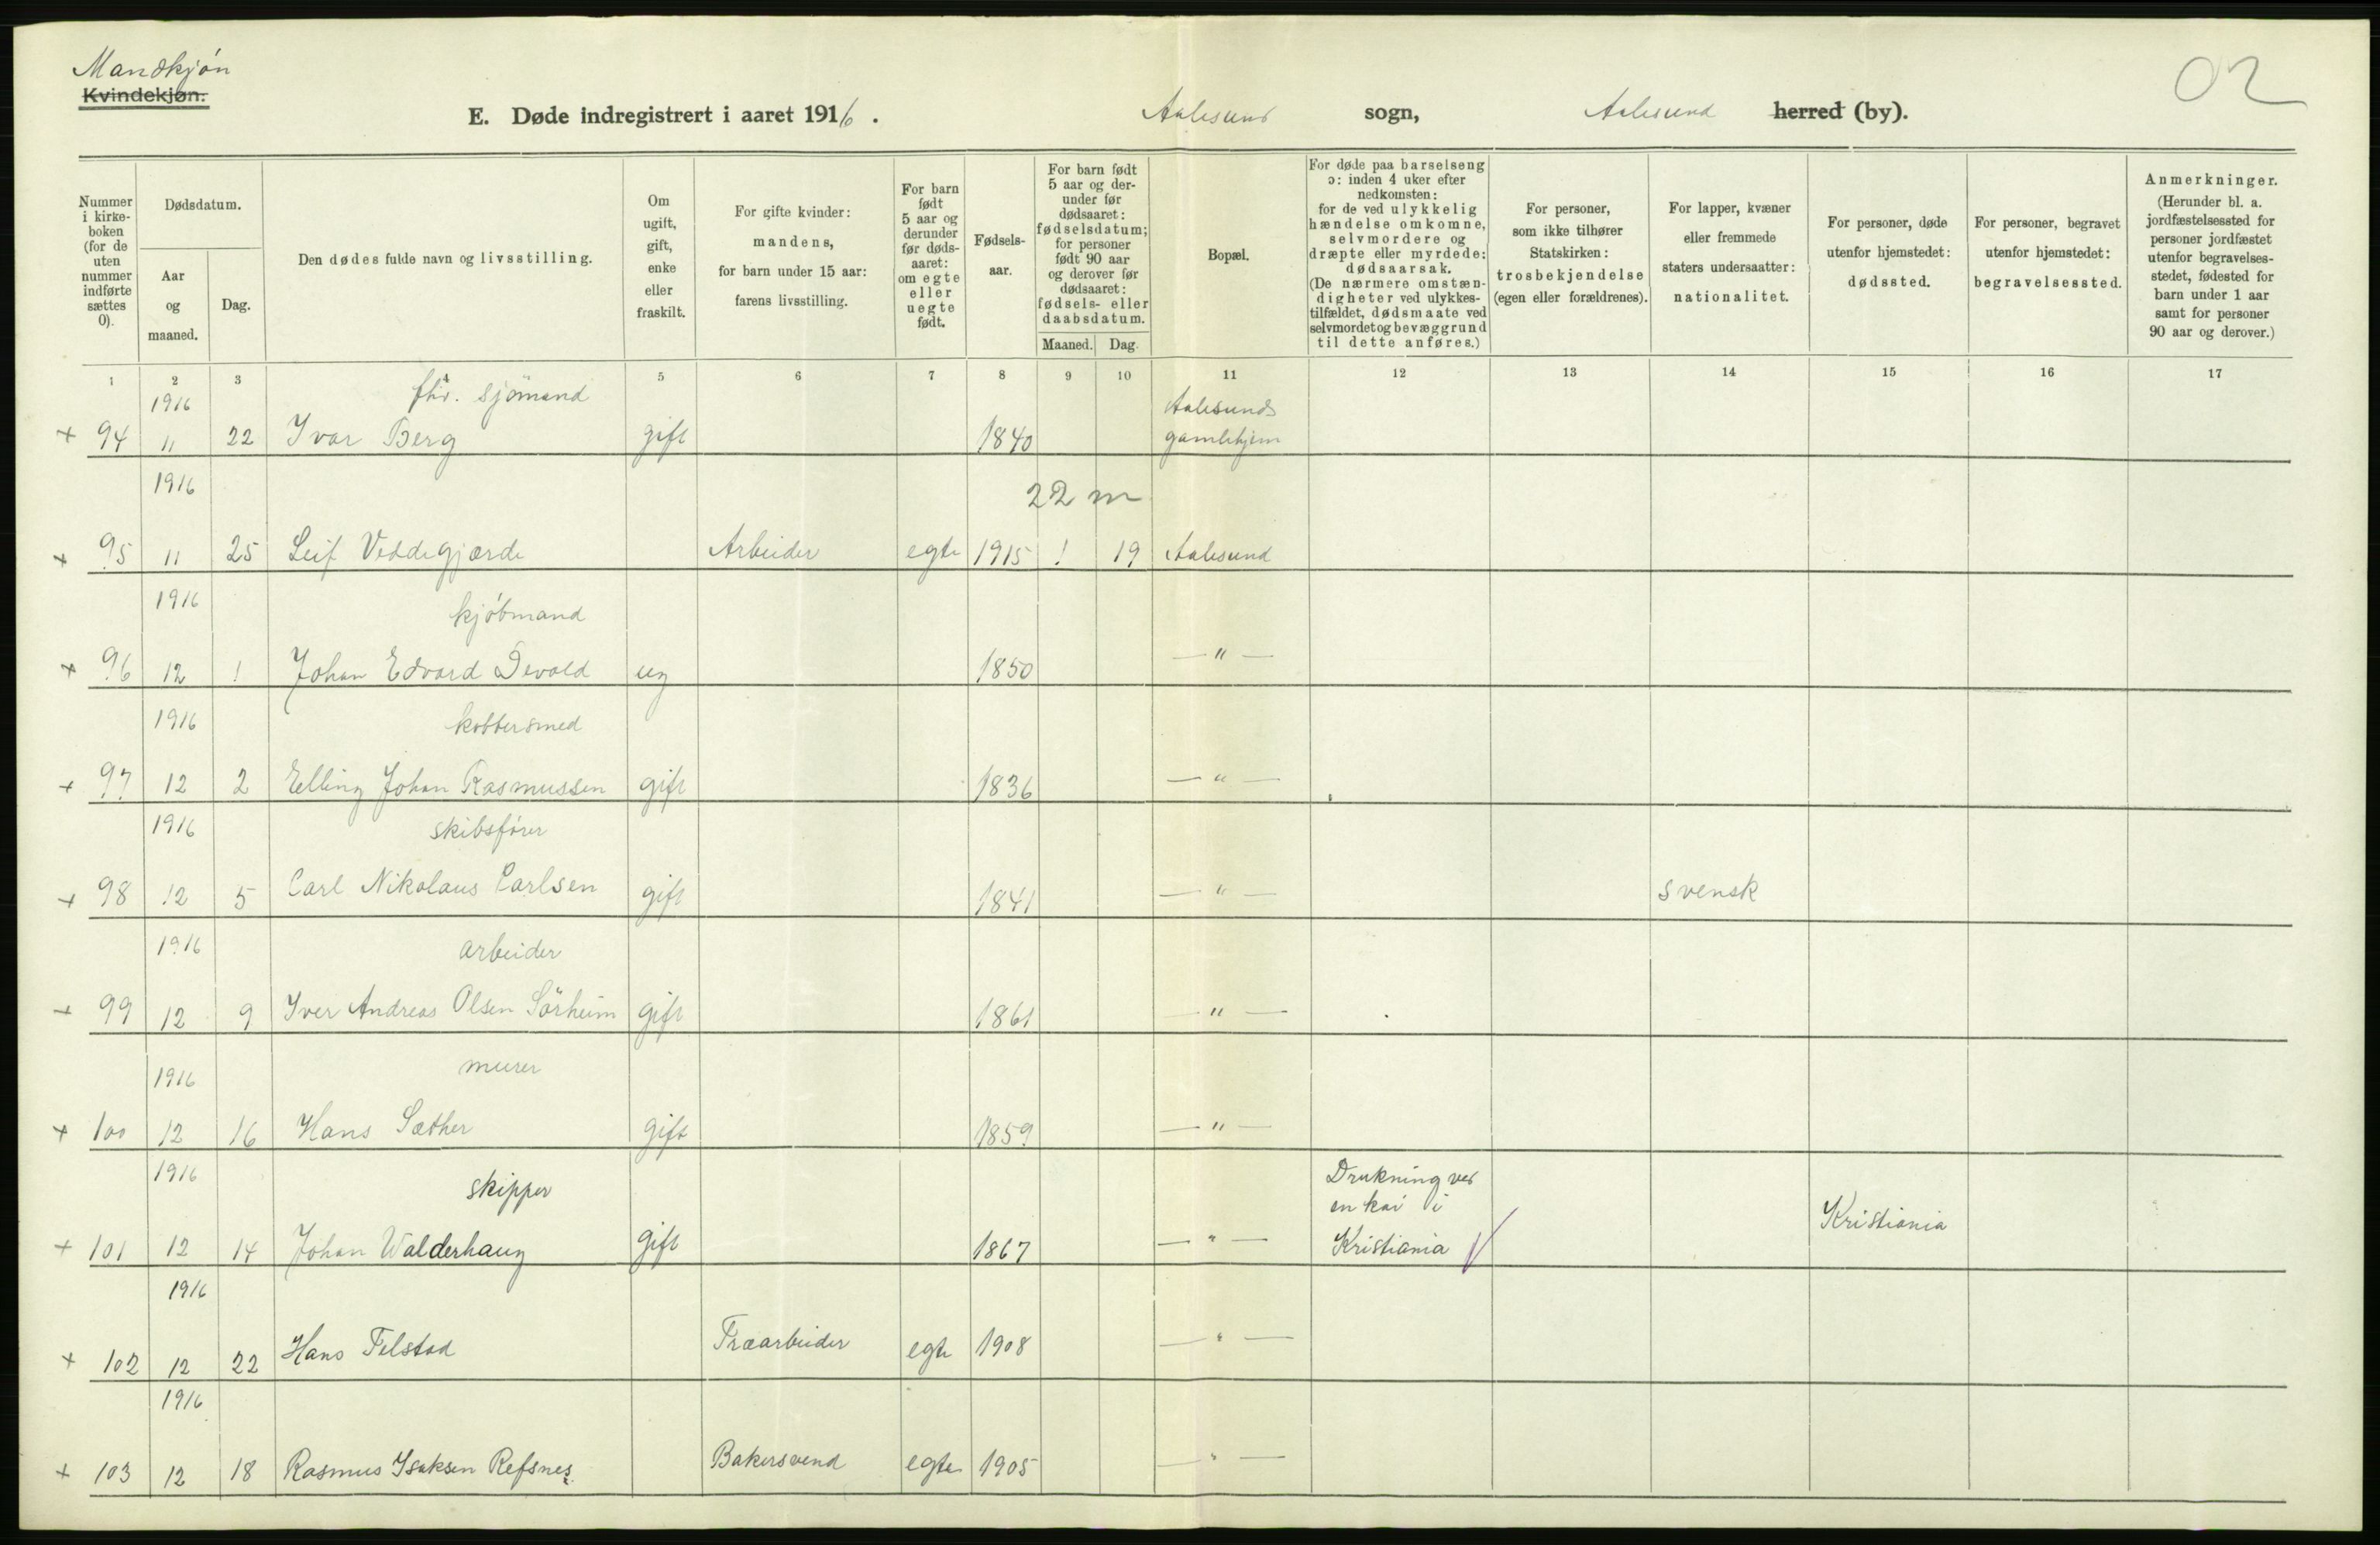 Mandkjøn
Kvindekjøn.
02
E. Døde indregistrert i aaret 1916. Aalesund sogn, Aalesund herred (by).
Nummer i kirke-boken (for de uten nummer indførte sættes 0).
Dødsdatum.
Aar og maaned.
Dag.
Den dødes fulde navn og livsstilling.
Om ugift, gift, enke eller fraskilt.
For gifte kvinder: mandens, for barn under 15 aar: farens livsstilling.
For barn født 5 aar og derunder før døds-aaret: om egte eller uegte født.
Fødsels-aar.
For barn født 5 aar og der-under før dødsaaret: fødselsdatum; for personer født 90 aar og derover før dødsaaret: fødsels- eller daabsdatum.
Maaned. Dag.
Bopæl.
For døde paa barselseng ɔ: inden 4 uker efter nedkomsten: for de ved ulykkelig hændelse omkomne, selvmordere og dræpte eller myrdede: dødsaarsak. (De nærmere omstæn-digheter ved ulykkes-tilfældet, dødsmaate ved selvmordet og bevæggrund til dette anføres.)
For personer, som ikke tilhører Statskirken: trosbekjendelse (egen eller forældrenes).
For lapper, kvæner eller fremmede staters undersaatter: nationalitet.
For personer, døde utenfor hjemstedet: dødssted.
For personer, begravet utenfor hjemstedet: begravelsessted.
Anmerkninger. (Herunder bl. a. jordfæstelsessted for personer jordfæstet utenfor begravelses-stedet, fødested for barn under 1 aar samt for personer 90 aar og derover.)
1 2 3 5 6 7 8 9 10 11 12 13 14 15 16 17
1916 fhv. sjømand Aalesunds
+ 94 11 22 Ivar Berg gift 1840 gamlehjem
1916 22 m
+ 95 11 25 Leif Veddegjærde Arbeider egte 1915 1 19 Aalesund
1916 kjøbmand
+ 96 12 1 Johan Edvard Devold ug 1850 — " —
1916 kobbersmed
+ 97 12 2 Elling Johan Rasmussen gift 1836 — " —
1916 skibsfører
+ 98 12 5 Carl Nikolaus Carlsen gift 1841 — " — svensk
1916 arbeider
+ 99 12 9 Iver Andreas Olsen Sörheim gift 1861 — " —
1916 murer
+ 100 12 16 Hans Sæther gift 1859 — " —
1916 skipper Drukning ved
en kai i Kristiania
+ 101 12 14 Johan Walderhaug gift 1867 — " — Kristiania
1916
+ 102 12 22 Hans Tilstad Træarbeider egte 1908 — " —
1916
+ 103 12 18 Rasmus Isaksen Refsnes Bakersvend egte 1905 — " —